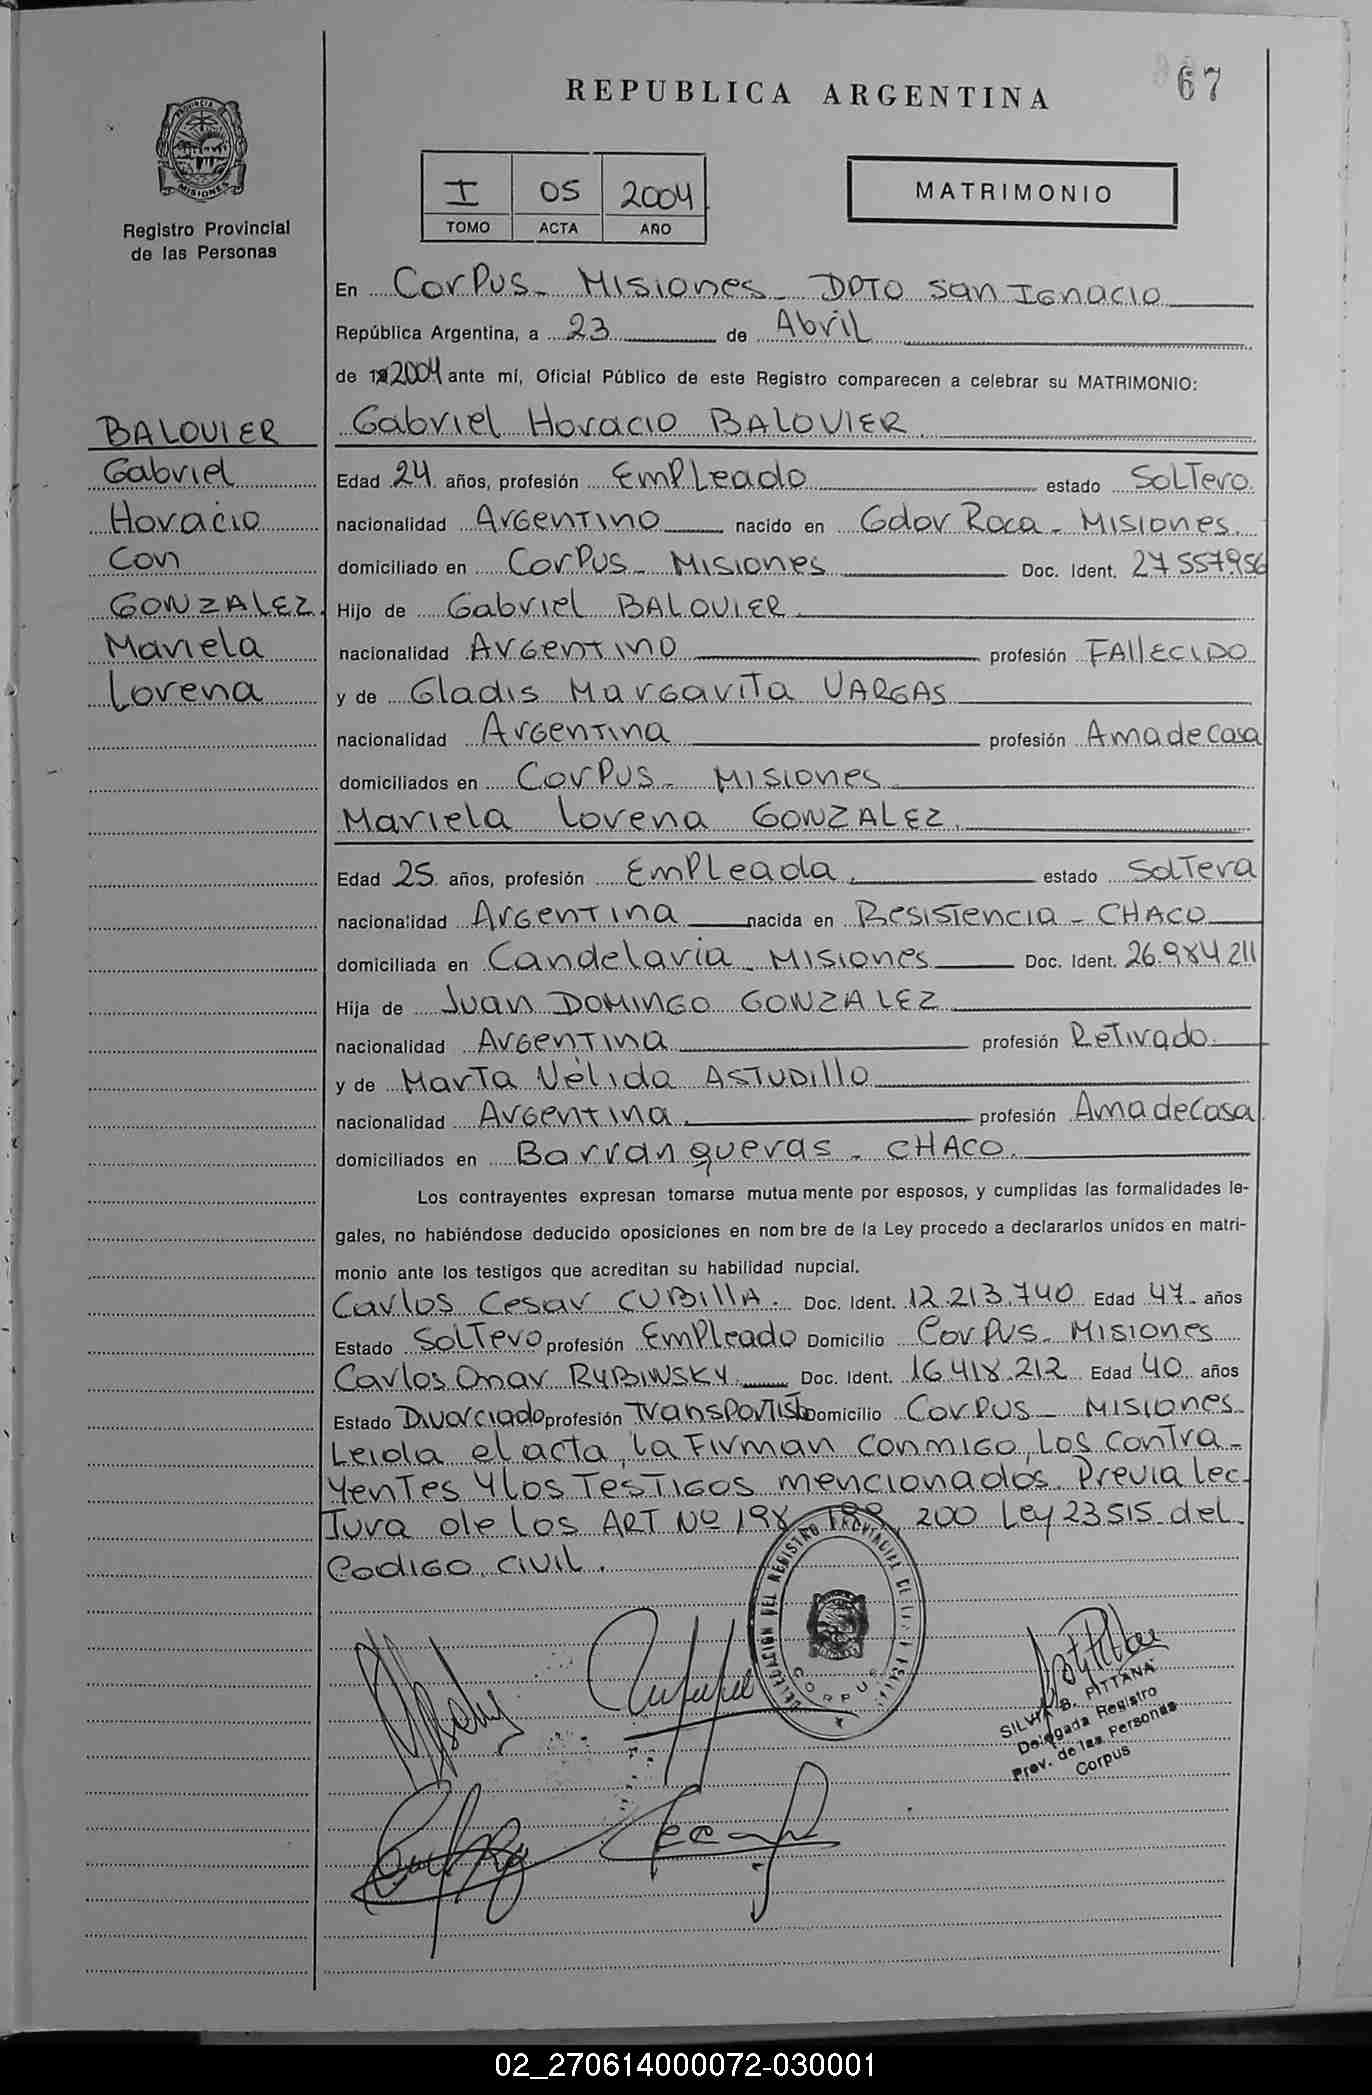 67
REPUBLICA ARGENTINA
PROVINCIA
MISIONES
Registro Provincial
de las Personas
I 05 2004
TOMO ACTA AÑO
MATRIMONIO
En Corpus - Misiones - DPTO San Ignacio
República Argentina, a 23 de Abril
de 2004 ante mí, Oficial Público de este Registro comparecen a celebrar su MATRIMONIO:
BALOUIER
Gabriel
Horacio
Con
GONZALEZ.
Mariela
Lorena
Gabriel Horacio BALOUIER
Edad 24 años, profesión Empleado estado Soltero.
nacionalidad Argentino nacido en Gdor Roca - Misiones.
domiciliado en Corpus - Misiones Doc. Ident. 27.557.956
Hijo de Gabriel BALOUIER
nacionalidad Argentino profesión FALLECIDO
y de Gladis Margarita VARGAS
nacionalidad Argentina profesión Ama de Casa
domiciliados en Corpus - Misiones
Mariela Lorena GONZALEZ.
Edad 25 años, profesión Empleada. estado Soltera
nacionalidad Argentina nacida en Resistencia - CHACO
domiciliada en Candelaria - Misiones Doc. Ident. 26.984.211
Hija de Juan DOMINGO GONZALEZ
nacionalidad Argentina profesión Retirado.
y de Marta Nélida ASTUDILLO
nacionalidad Argentina. profesión Ama de Casa.
domiciliados en Barranqueras - CHACO.
Los contrayentes expresan tomarse mutua mente por esposos, y cumplidas las formalidades le-
gales, no habiéndose deducido oposiciones en nom bre de la Ley procedo a declararlos unidos en matri-
monio ante los testigos que acreditan su habilidad nupcial.
Carlos Cesar CUBILLA. Doc. Ident. 12.213.740 Edad 47 años
Estado Soltero profesión Empleado Domicilio Corpus - Misiones
Carlos Omar RYBINSKY Doc. Ident. 16.418.212 Edad 40 años
Estado Divorciado profesión Transportista Domicilio Corpus - Misiones
Leida el acta, la Firman conmigo, los contra-
yentes y los Testigos mencionados. Previa lec-
tura de los ART Nº 198 199, 200 Ley 23515 del
Codigo Civil.
DELEGACION DEL REGISTRO PROVINCIAL DE LAS
CORPUS
SILVIA B. PITTANA
Delegada Registro
Prov. de las Personas
Corpus
02_270614000072-030001